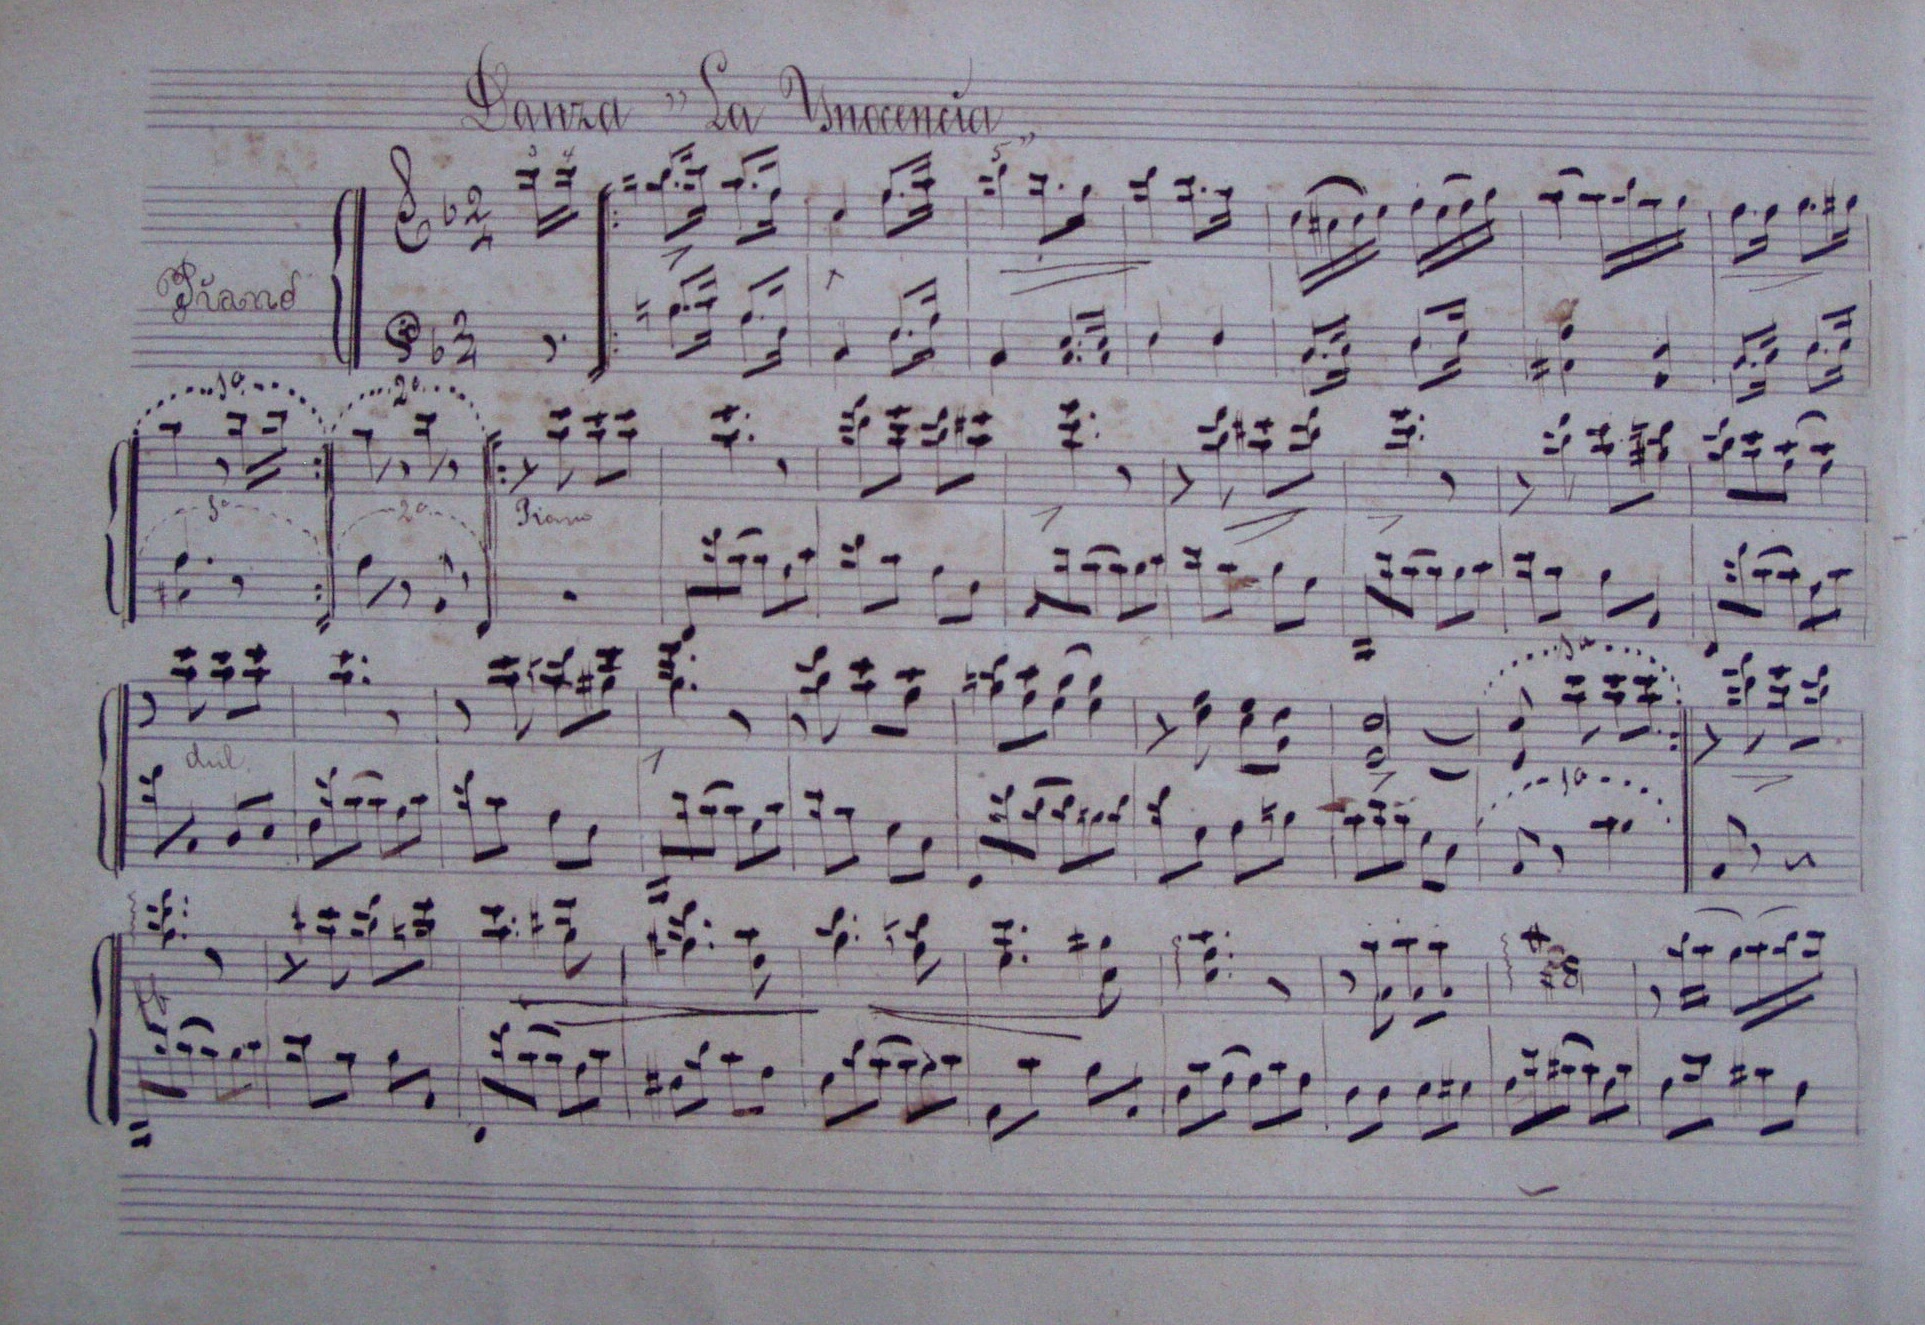 Danza "La Ynocencia"
3 4 5
Piano
2
4
2
4
1ª 2ª
1ª 2ª
Piano
1ª
dul.
1ª